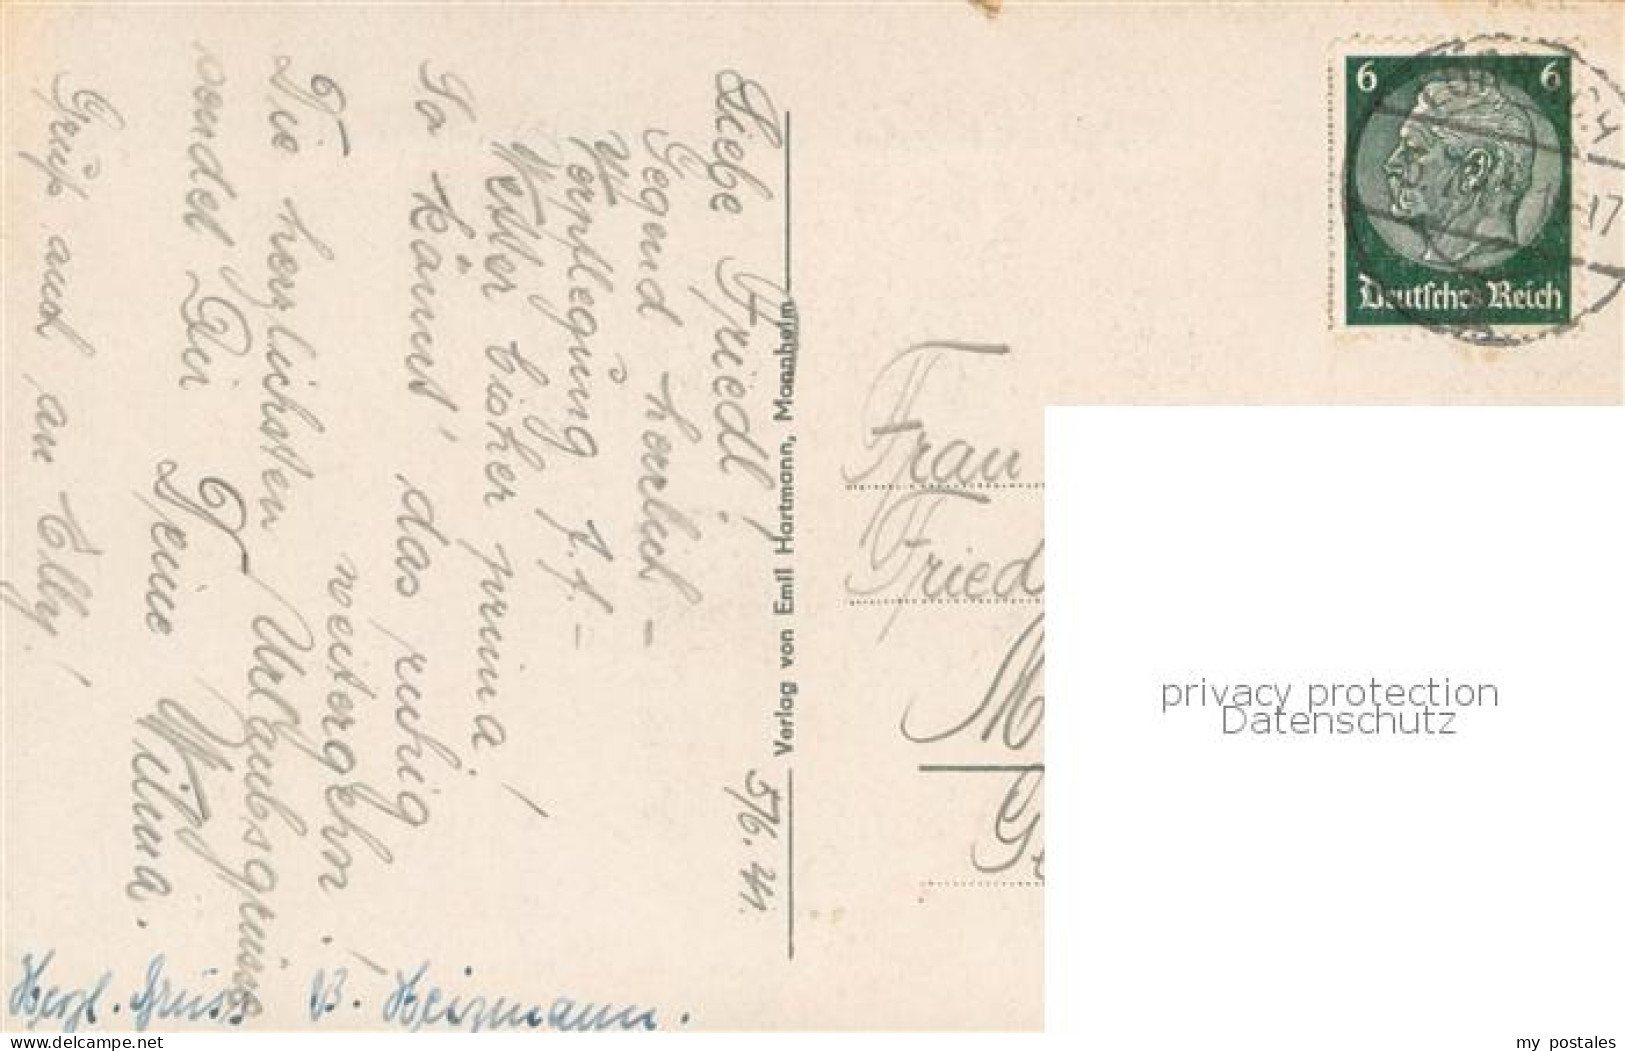 5/6. 41.
Liebe Friedl!
Gegend herrlich –
Verpflegung f. f. –
Wetter bisher prima!
So könnt' das ruhig
weitergehn!
Die herrlichsten Urlaubsgrüsse
sendet Dir
Deine Wilma.
Gruß auch an Elly!
Herzl. Gruss B. Heizmann.
Verlag von Emil Hartmann, Mannheim
6 6
Deutsches Reich
17
Frau
Fried
M
G
privacy protection
Datenschutz
ak-ansichtskarten.de
my postales